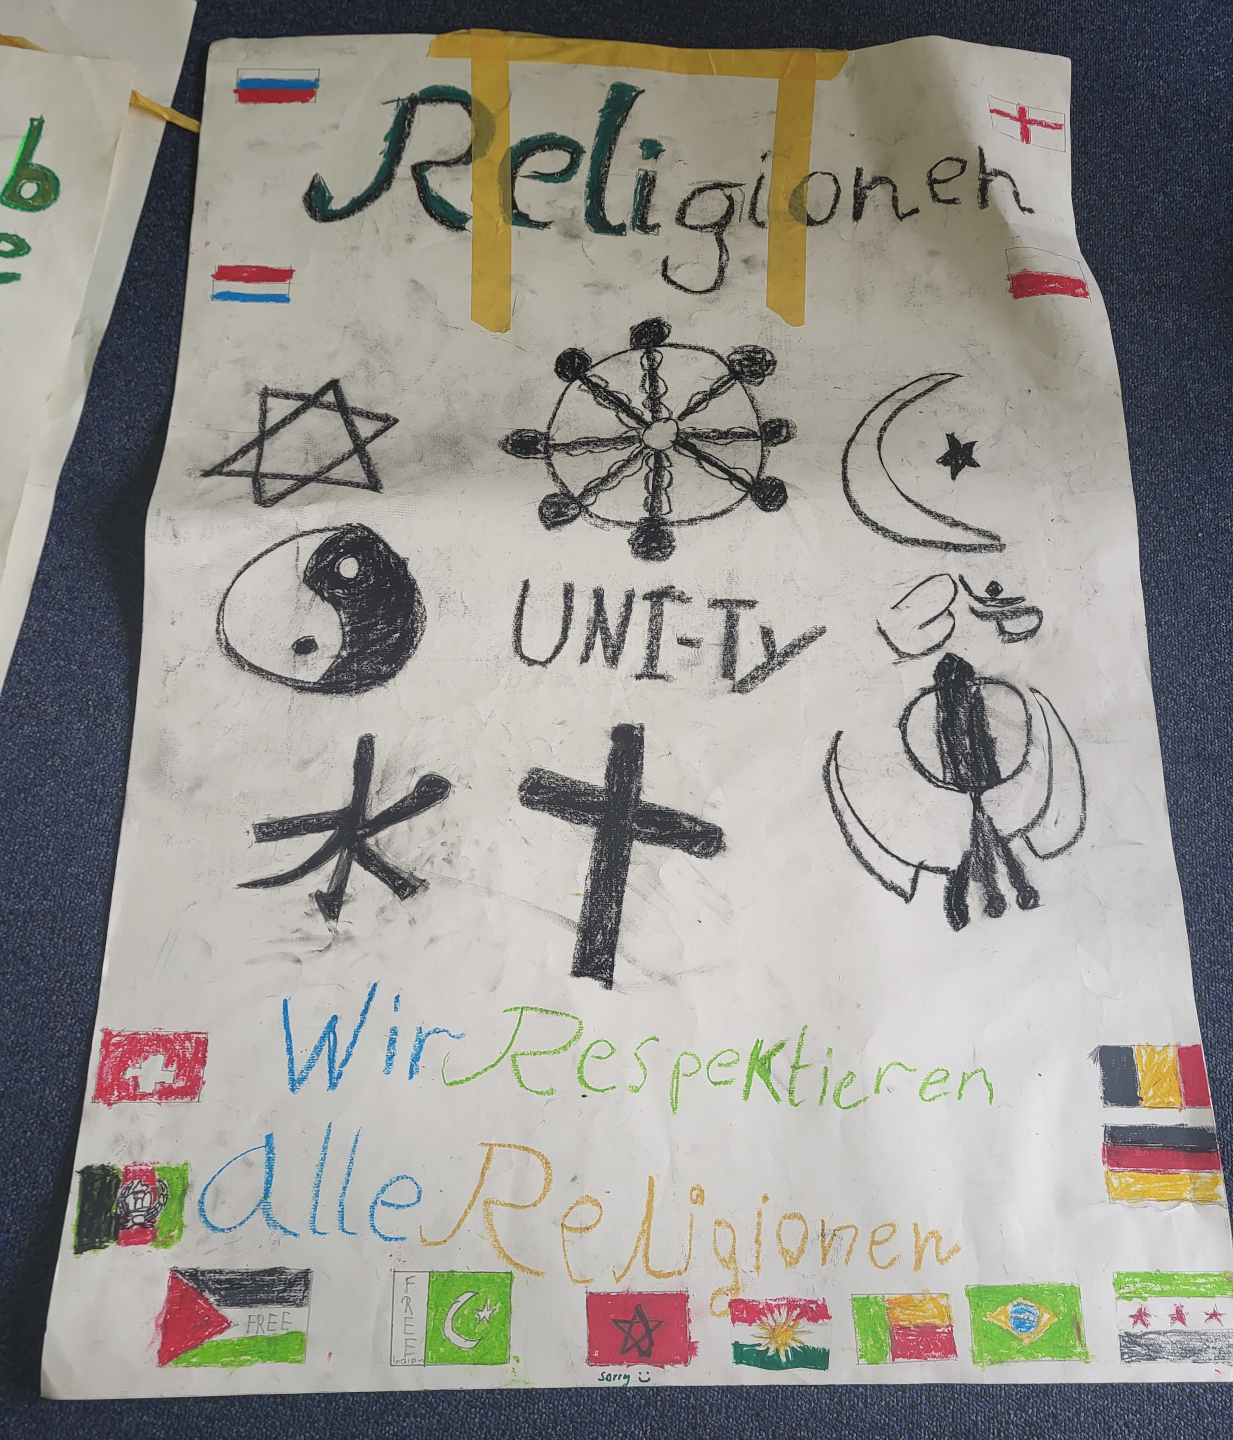 b
e
Religionen
UNI-Ty
Wir Respektieren
alle Religionen
FREE
FREE
Indian
sorry